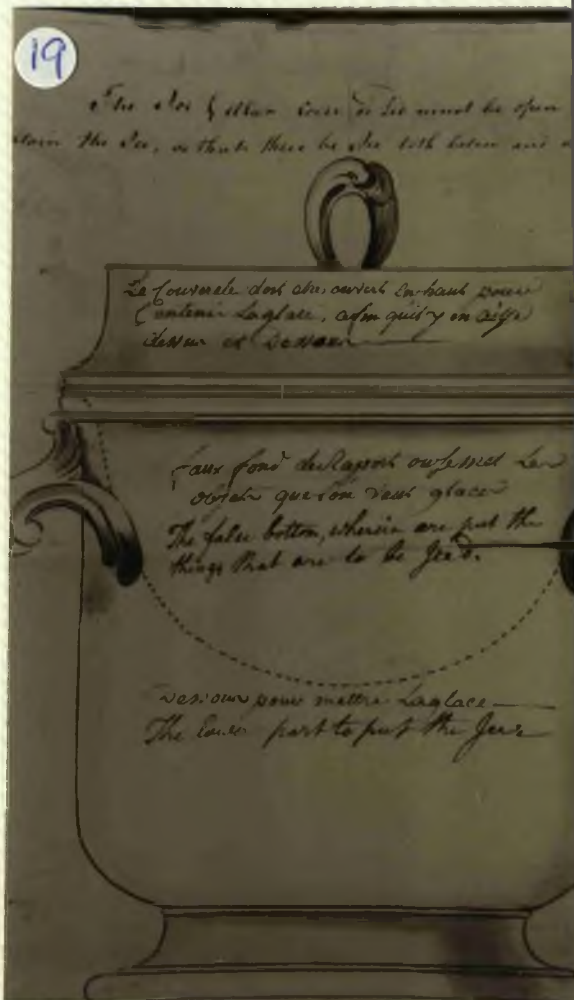 19
The Ice Cellar Cover or Lid must be open
tain the Ice, so that there be Ice both below and a
Le Couvercle doit etre ouvert En haut pour
Contenir Laglace, afin quil y en aiye
dessus et Dessous
faux fond de Raport ou se met Les
objets que lon veut glacer
The false bottom, wherein are put the
things that are to be Jced.
Dessous pour mettre Laglace
The Lower part to put the Jce